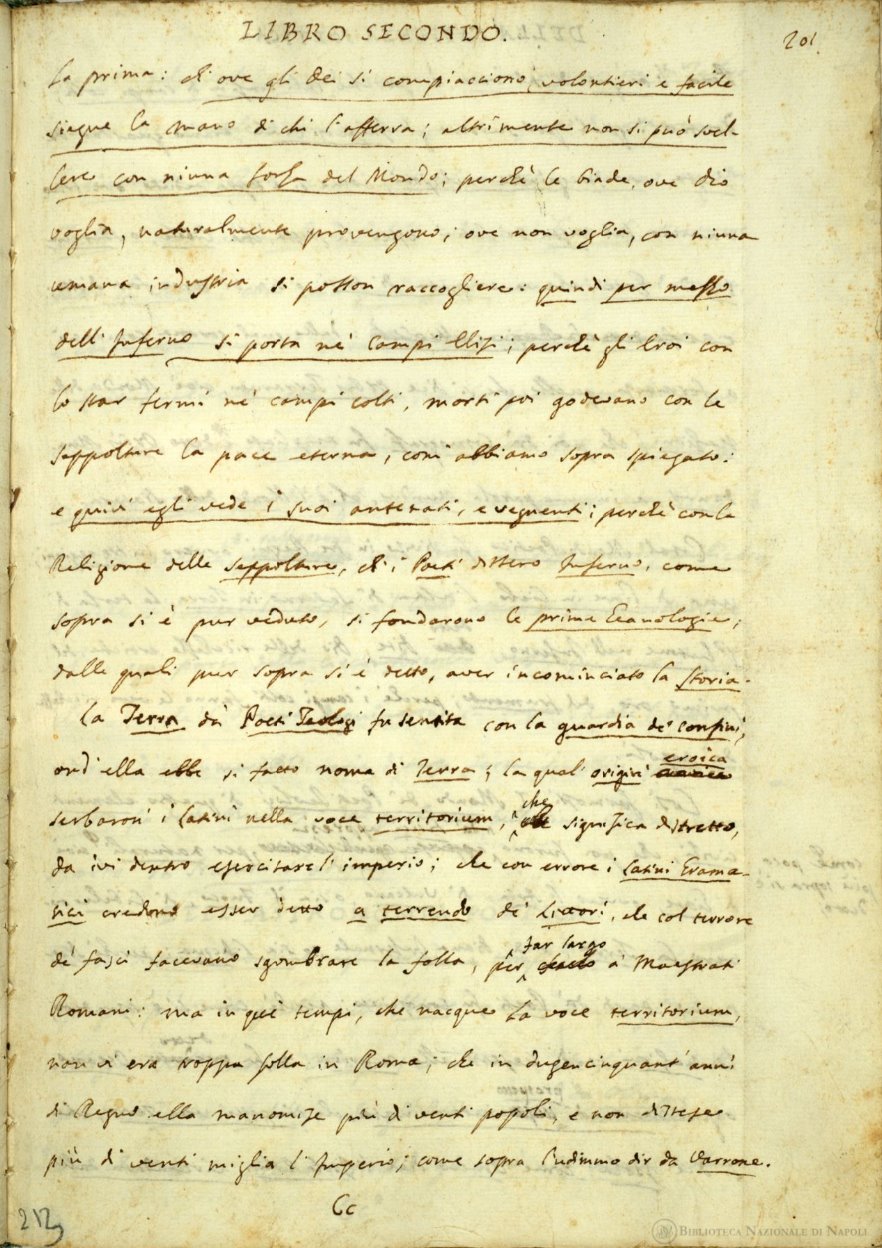 LIBRO SECONDO.
201
La prima: ch' ove gli Dei si compiacciono, volontieri e facile
siegue la mano di chi l'afferra; altrimente non si può svel-
lere con niuna forza del Mondo; perchè le biade, ove Dio
voglia, naturalmente provengono; ove non voglia, con niuna
umana industria si posson raccogliere: quindi per mezzo
dell'Inferno si porta ne' Campi Elisi; perchè gli Eroi con
lo star fermi ne' campi colti, morti poi godevano con le
seppolture la pace eterna, com' abbiamo sopra spiegato:
e quivi egli vede i suoi antenati, e vegnenti; perchè con la
Religione delle seppolture, ch' i Poeti dissero Inferno, come
sopra si è pur veduto, si fondarono le prime Geanologie,
dalle quali pur sopra si è detto, aver incominciato la Storia.
La Terra da' Poeti Teologi fu sentita con la guardia de' confini,
ond' ella ebbe sì fatto nome di Terra; la qual' origin' eroica
serbaron' i Latini nella voce territorium, che significa distretto,
da ivi dentro esercitare l'imperio; che con errore i Latini Grama-
tici credono esser detto a terrendo de' Littori, che col terrore
de' fasci facevano sgombrare la folla, per far largo a' Maestrati
Romani: ma in que' tempi, che nacque la voce territorium,
non vi era troppa folla in Roma; che in dugencinquant' anni
di Regno ella manomise più di venti popoli, e non distese
più di venti miglia l'Imperio; come sopra l'udimmo dir da Varrone.
Cc
212
BIBLIOTECA NAZIONALE DI NAPOLI